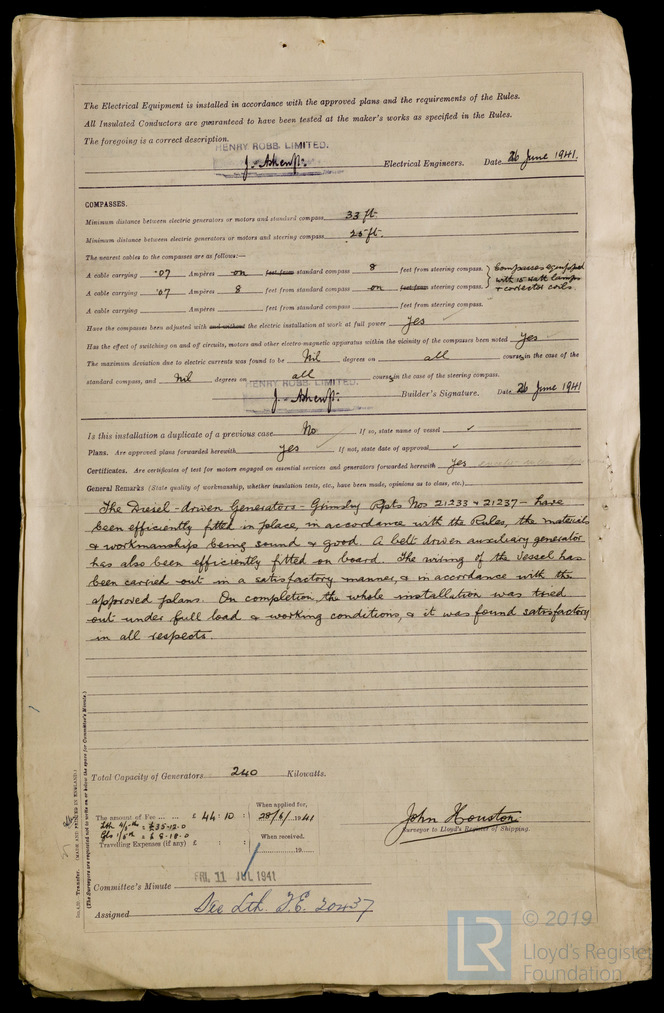 The Electrical Equipment is installed in accordance with the approved plans and the requirements of the Rules.
All Insulated Conductors are guaranteed to have been tested at the maker's works as specified in the Rules.
The foregoing is a correct description.
HENRY ROBB, LIMITED.
Electrical Engineers. Date 26 June 1941.
COMPASSES.
Minimum distance between electric generators or motors and standard compass 33 ft.
Minimum distance between electric generators or motors and steering compass 25 ft.
The nearest cables to the compasses are as follows:—
A cable carrying .07 Ampères on feet from standard compass 8 feet from steering compass. } Compasses equipped
A cable carrying .07 Ampères 8 feet from standard compass on feet from steering compass. } with 15 watt lamps
& corrector coils.
A cable carrying Ampères feet from standard compass feet from steering compass.
Have the compasses been adjusted with and without the electric installation at work at full power Yes
Has the effect of switching on and off circuits, motors and other electro-magnetic apparatus within the vicinity of the compasses been noted Yes
The maximum deviation due to electric currents was found to be Nil degrees on all course, in the case of the
standard compass, and Nil degrees on all course, in the case of the steering compass.
HENRY ROBB, LIMITED.
Builder's Signature. Date 26 June 1941
Is this installation a duplicate of a previous case No If so, state name of vessel ✓
Plans. Are approved plans forwarded herewith Yes If not, state date of approval ✓
Certificates. Are certificates of test for motors engaged on essential services and generators forwarded herewith Yes
General Remarks (State quality of workmanship, whether insulation tests, etc., have been made, opinions as to class, etc.)
The Diesel-driven Generators - Grimsby Rpts Nos 21233 & 21237 - have
been efficiently fitted in place, in accordance with the Rules, the materials
& workmanship being sound & good. A belt driven auxiliary generator
has also been efficiently fitted on board. The wiring of the vessel has
been carried out in a satisfactory manner, & in accordance with the
approved plans. On completion, the whole installation was tried
out under full load & working conditions, & it was found satisfactory
in all respects.
Total Capacity of Generators 240 Kilowatts.
The amount of Fee £ 44 : 10 : When applied for, 28/6/1941
Lth 4/5ths = £35-12-0
Gbs 1/5th = £8-18-0
Travelling Expenses (if any) £ : : When received, 19
John Houston
Surveyor to Lloyd's Register of Shipping.
Committee's Minute FRI. 11 JUL 1941
Assigned See Lth. F.E. 20437
(The Surveyors are requested not to write on or below the space for Committee's Minute.)
Transfer. (MADE AND PRINTED IN ENGLAND.)
LR © 2019
Lloyd's Register
Foundation